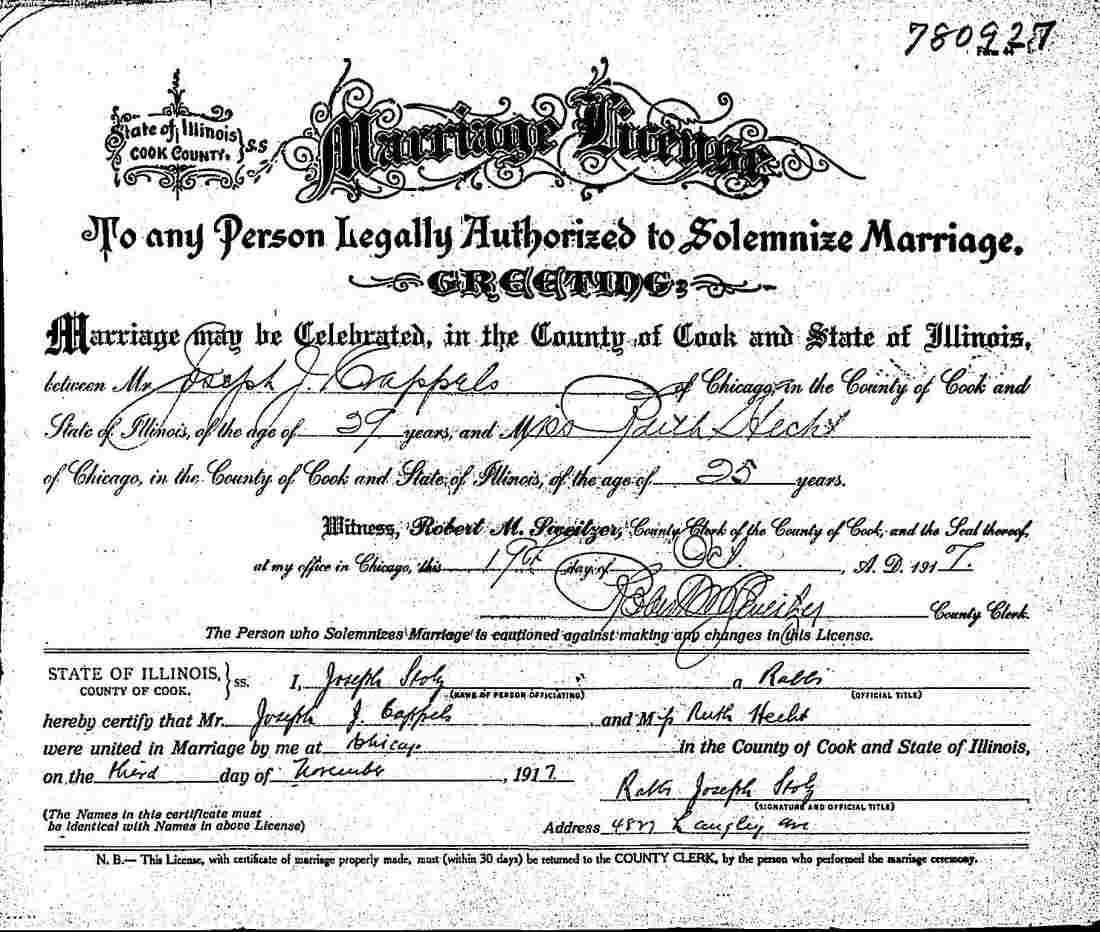 780927
Form 44
State of Illinois
COOK COUNTY. } S.S
Marriage License
To any Person Legally Authorized to Solemnize Marriage.
GREETING:
Marriage may be Celebrated, in the County of Cook and State of Illinois,
between Mr. Joseph J. Cappels of Chicago, in the County of Cook and
State of Illinois, of the age of years, and Miss Ruth Hecht
of Chicago, in the County of Cook and State of Illinois, of the age of 25 years.
Witness, Robert M. Sweitzer, County Clerk of the County of Cook, and the Seal thereof,
at my office in Chicago, this 19th day of Oct , A. D. 1917.
Robert M Sweitzer County Clerk.
The Person who Solemnizes Marriage is cautioned against making any changes in this License.
STATE OF ILLINOIS, } ss. I, Joseph Stolz a Rabbi
COUNTY OF COOK. (NAME OF PERSON OFFICIATING) (OFFICIAL TITLE)
hereby certify that Mr. Joseph J. Cappels and Miss Ruth Hecht
were united in Marriage by me at Chicago in the County of Cook and State of Illinois,
on the third day of November , 1917
Rabbi Joseph Stolz
(SIGNATURE AND OFFICIAL TITLE)
(The Names in this certificate must
be identical with Names in above License)
Address Langley Ave
N. B.— This License, with certificate of marriage properly made, must (within 30 days) be returned to the COUNTY CLERK, by the person who performed the marriage ceremony.